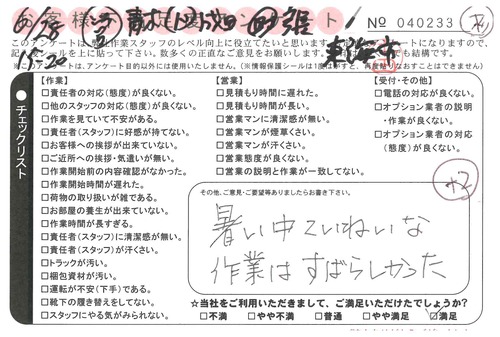 お客様 アンケート No 040233
6/28
15-20
このアンケートは弊社作業スタッフのレベル向上に役立てたいと思います
の上に貼って下さい。数多くの正直なご意見をお願いします。
も結構です。
※このアンケートは、アンケート目的以外には使用いたしません。
チェックリスト
【作業】
□責任者の対応(態度)が良くない。
□他のスタッフの対応(態度)が良くない。
□作業を見ていて不安がある。
□責任者(スタッフ)に好感が持てない。
□お客様への挨拶が出来ていない。
□ご近所への挨拶・気遣いが無い。
□作業開始前の内容確認がなかった。
□作業開始時間が遅れた。
□荷物の取り扱いが雑である。
□お部屋の養生が出来ていない。
□作業時間が長すぎる。
□責任者(スタッフ)に清潔感が無い。
□責任者(スタッフ)が汗くさい。
□トラックが汚い。
□梱包資材が汚い。
□運転が不安(下手)である。
□靴下の履き替えをしてない。
□スタッフにやる気がみられない。
【営業】
□見積もり時間に遅れた。
□見積もり時間が長い。
□営業マンに清潔感が無い。
□営業マンが煙草くさい。
□営業マンが汗くさい。
□営業態度が良くない。
□営業の説明と作業が一致してない。
【受付・その他】
□電話の対応が良くない。
□オプション業者の説明
・作業が良くない。
□オプション業者の対応
(態度)が良くない。
その他、ご意見・ご要望等ありましたらお書き下さい。
暑い中ていねいな
作業はすばらしかった
☆当社をご利用いただきまして、ご満足いただけたでしょうか?
□不満 □やや不満 □普通 □やや満足 □満足